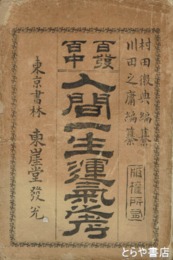 村田徴典編纂
川田之庸編纂
百發
百中
人間一生運氣傳
版権所有
東京書林 東崖堂發兌
とらや書店